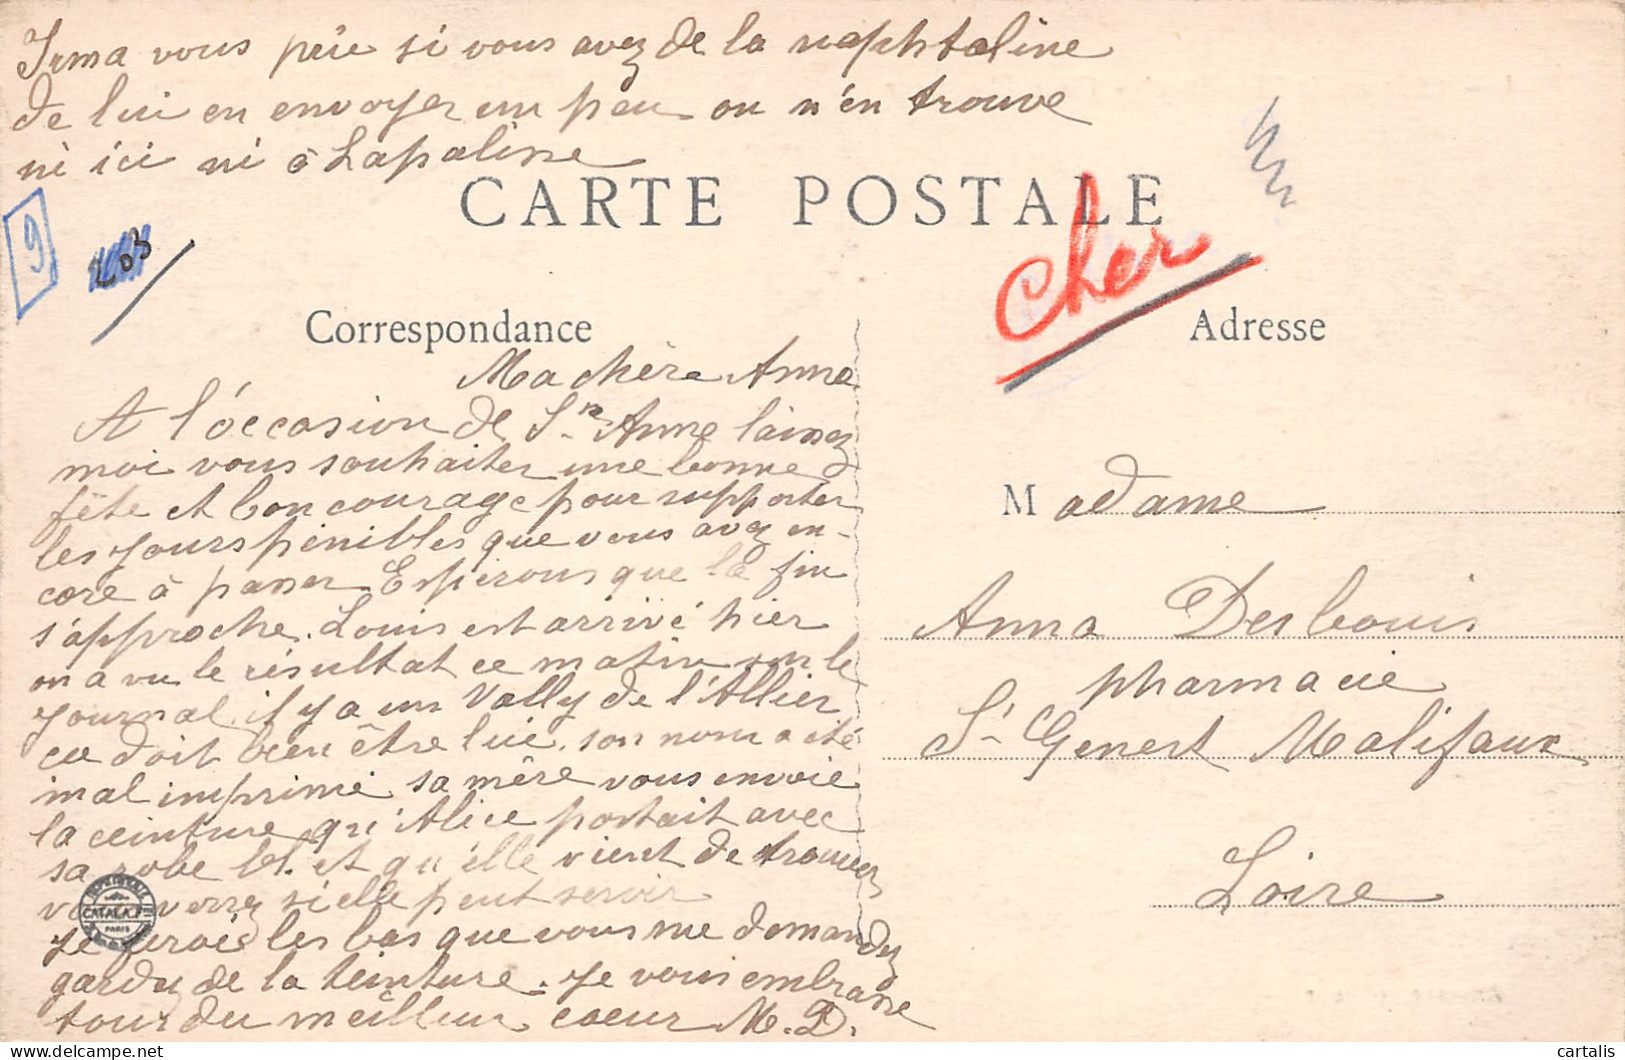 Irma vous prie si vous avez de la naphtaline
de lui en envoyer un peu on n'en trouve
ni ici ni à Lapalisse
CARTE POSTALE
9
203
Cher
Correspondance
Adresse
Ma chère Anna
A l'occasion de Ste Anne laissez
moi vous souhaiter une bonne
fête et bon courage pour supporter
les jours pénibles que vous avez en-
core à passer Espérons que la fin
s'approche. Louis est arrivé hier
on a vu le résultat ce matin sur le
journal, il y a un Vally de l'Allier
ce doit bien être lui. son nom a été
mal imprimé sa mère vous envoie
la ceinture qu'Alice portait avec
sa robe et qu'elle vient de trouver
vous verrez si elle peut servir
je les bas que vous me demandez
gardez de la teinture. Je vous embrasse
tous du meilleur coeur M. D.
Madame
Anna Desbouis
pharmacie
St Genest Malifaux
Loire
IMPRIMERIE
CATALA Fres
PARIS
cartalis